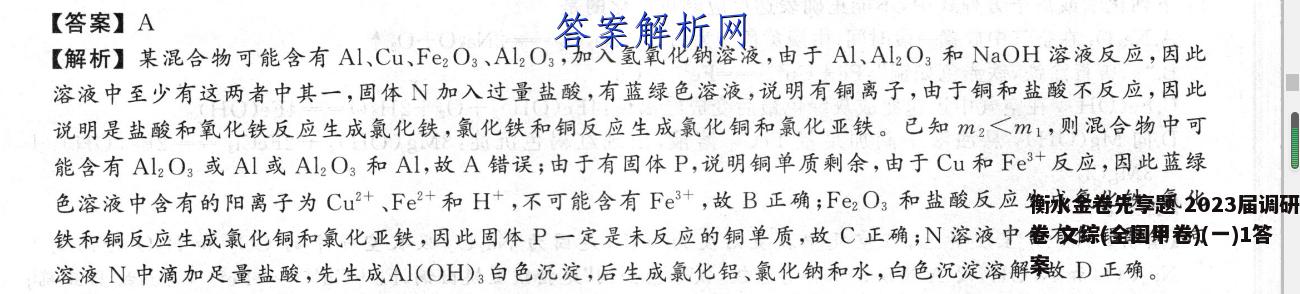 【答案】A
答案解析网
【解析】某混合物可能含有 Al、Cu、Fe₂O₃、Al₂O₃,加入氢氧化钠溶液,由于 Al、Al₂O₃ 和 NaOH 溶液反应,因此
溶液中至少有这两者中其一,固体 N 加入过量盐酸,有蓝绿色溶液,说明有铜离子,由于铜和盐酸不反应,因此
说明是盐酸和氧化铁反应生成氯化铁,氯化铁和铜反应生成氯化铜和氯化亚铁。已知 m₂<m₁,则混合物中可
能含有 Al₂O₃ 或 Al 或 Al₂O₃ 和 Al,故 A 错误;由于有固体 P,说明铜单质剩余,由于 Cu 和 Fe³⁺ 反应,因此蓝绿
色溶液中含有的阳离子为 Cu²⁺、Fe²⁺ 和 H⁺,不可能含有 Fe³⁺,故 B 正确;Fe₂O₃ 和盐酸反应
铁和铜反应生成氯化铜和氯化亚铁,因此固体 P 一定是未反应的铜单质,故 C 正确;N 溶液中
溶液 N 中滴加足量盐酸,先生成 Al(OH)₃ 白色沉淀,后生成氯化铝、氯化钠和水,白色沉淀溶解,故 D 正确。
衡水金卷先享题 2023届调研
卷 文综(全国甲卷)(一)1答
案